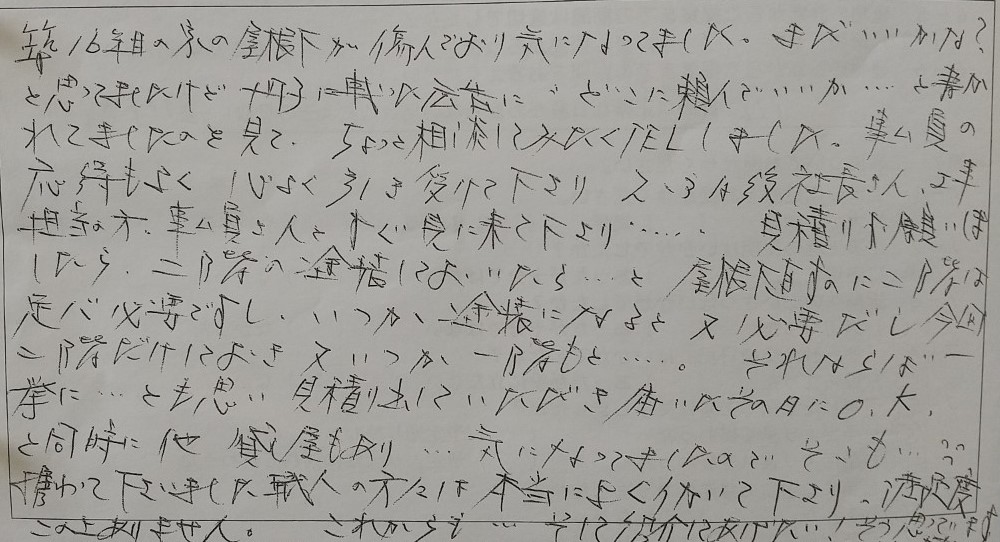 築16年目の家の屋根下が傷んでおり気になってました。まだいいかな?
と思ってましたけど 冊子に載った広告に“どこに頼んでいいか…と書か
れてましたのを見て、ちょっと相談してみたくTELしました。事ム員の
応待もよく 心よく引き受けて下さり 社長さん、工事
担当の方、事ム員さんとすぐ見に来て下さり…… 見積りお願いは
したら、二階の塗装しておいたら…と 屋根下直すのに二階は
足バ必要ですし、いつか塗装になると又必要だし 今回
二階だけしておき又いつか一階もと……。 それならば一
挙に…とも思い 見積り出していただき 届いたその日にO.K.
と同時に他 貸し屋もあり… 気になってましたので そっちも…
携わって下さいました職人の方々は本当によく働いて下さり、満足度
この上ありません。 これからも… そして紹介してあげたい!そう思ってます